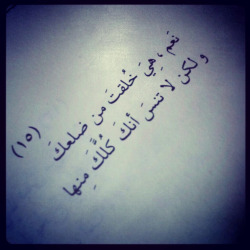 (١٥)
نَعَم ، هيَ خُلقتَ من ضلعكَ
و لكن لا تنسَ أنكَ كُلُّكَ منها